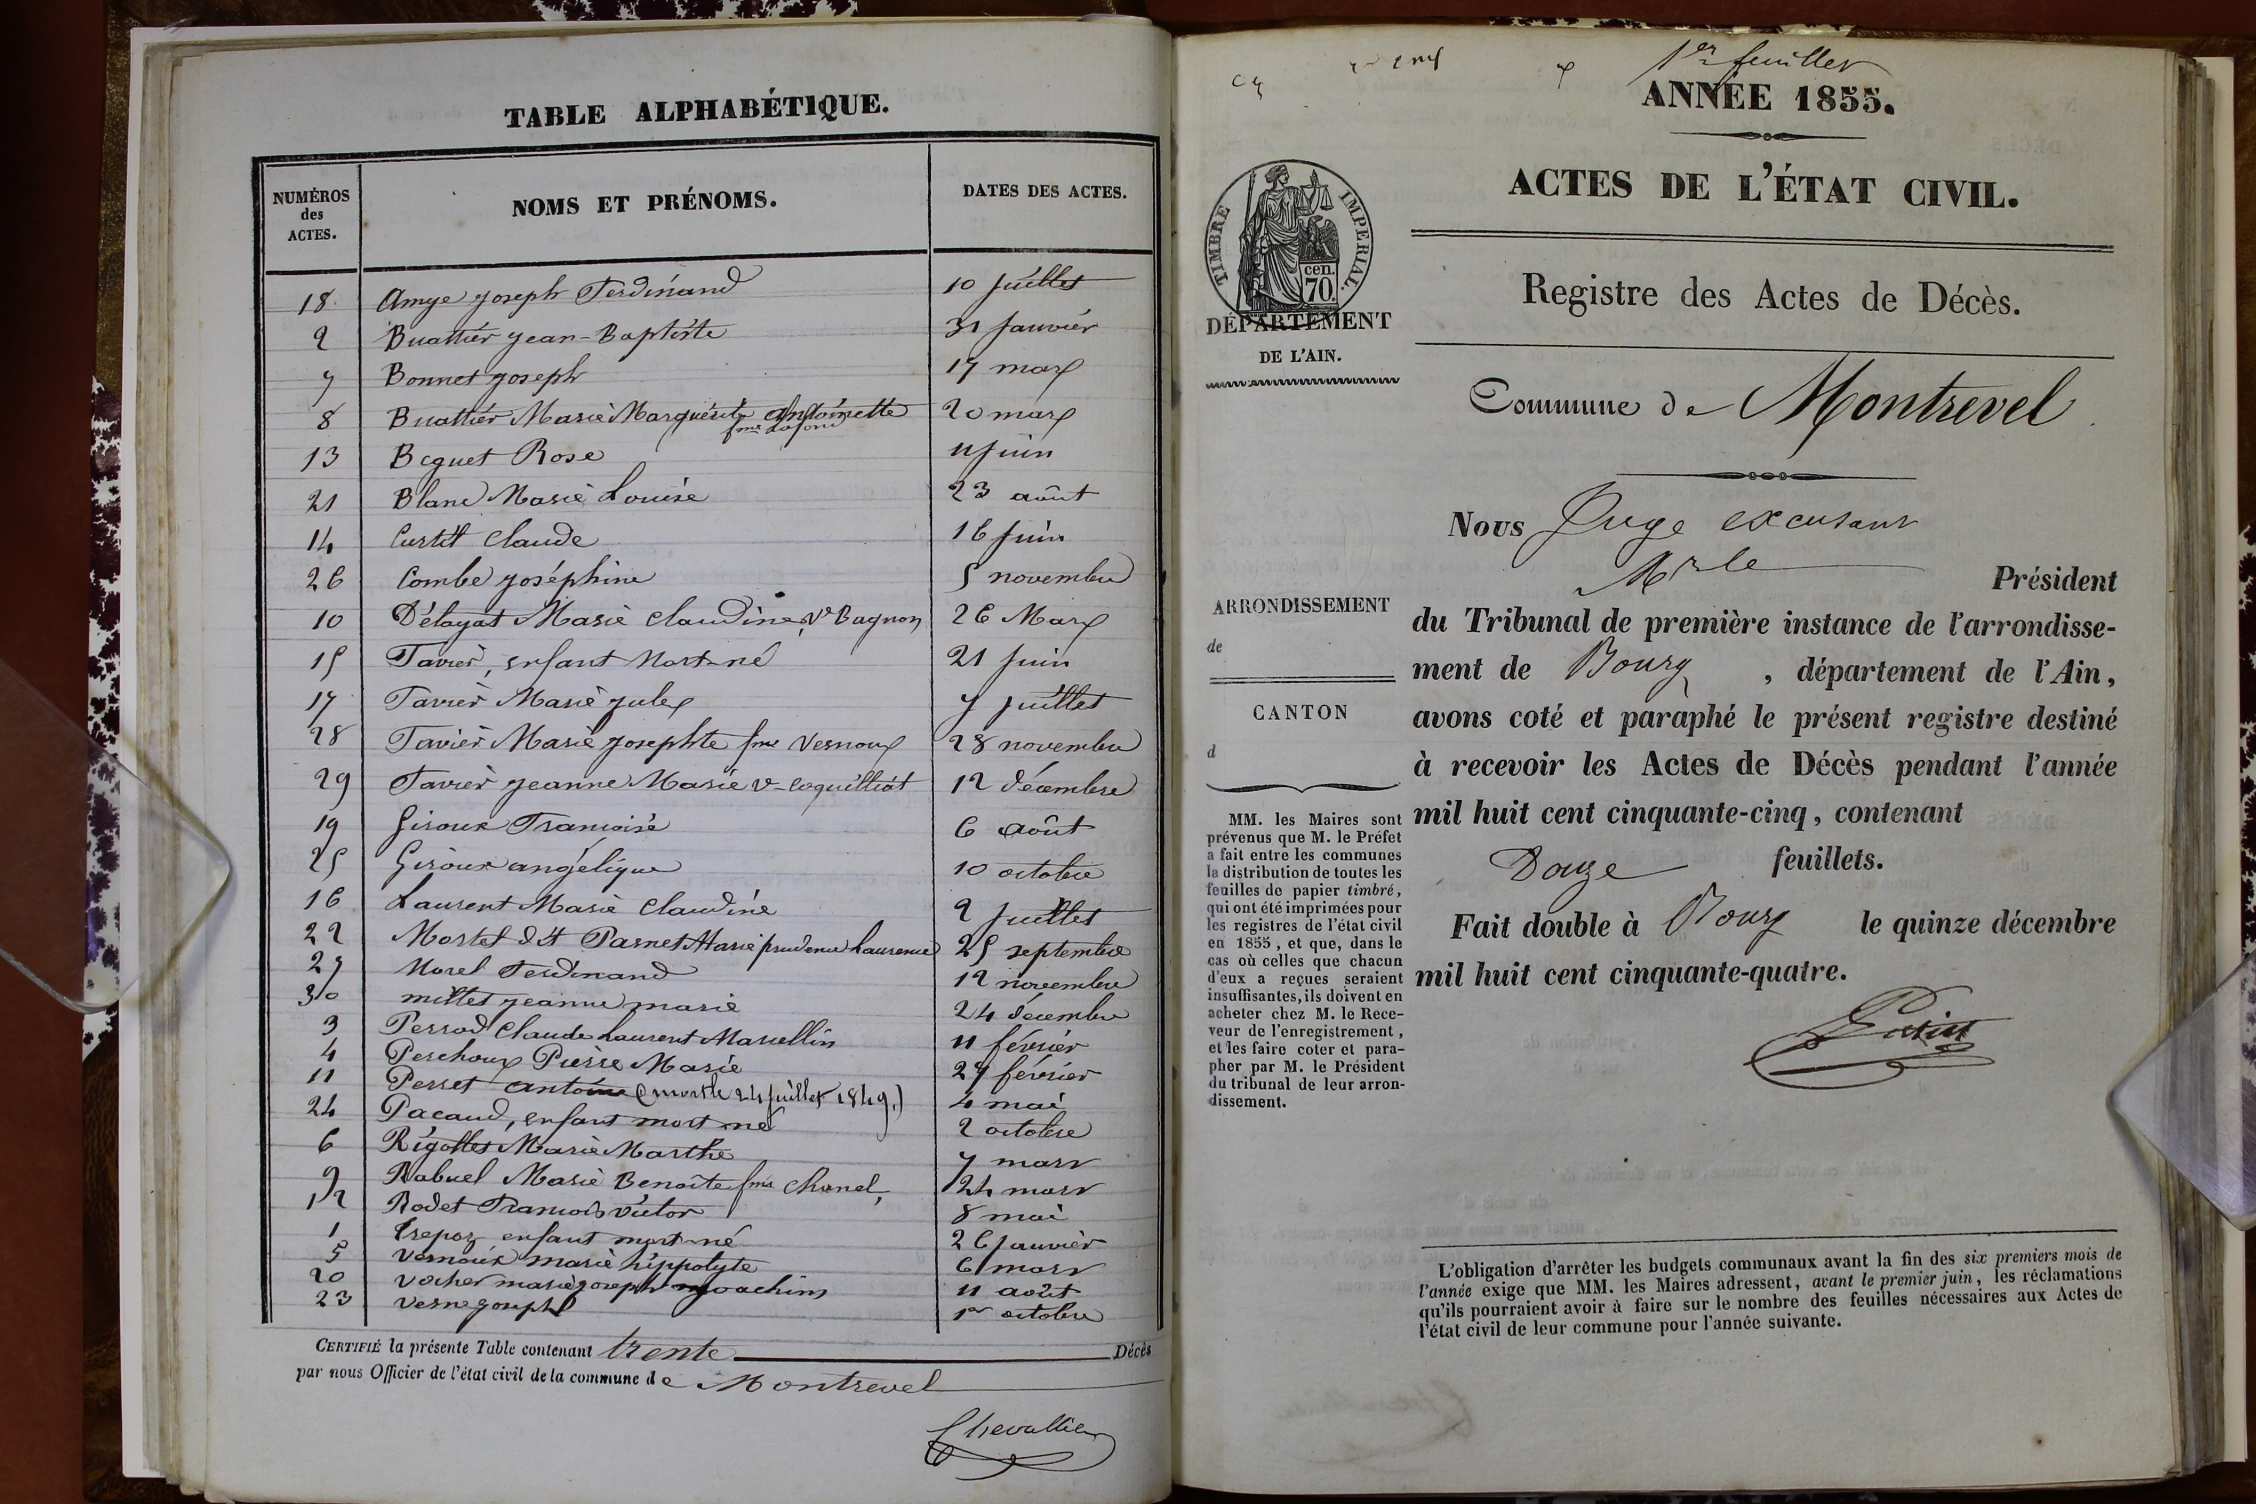 TABLE ALPHABÉTIQUE.
NUMÉROS des ACTES. NOMS ET PRÉNOMS. DATES DES ACTES.
18 Amye joseph Ferdinand 10 juillet
2 Buattier jean-Baptiste 31 janvier
7 Bonnet joseph 17 mars
8 Buattier Marie Marguerite Antoinette 20 mars
fme Lafond
13 Boguet Rose 11 juin
21 Blanc Marie Louise 23 août
14 Curtit Claude 16 juin
26 Combe joséphine 5 novembre
10 Délayat Marie Claudine, Ve Bagnon 26 Mars
15 Favier, enfant Mort-né 21 juin
17 Favier Marie jules 7 juillet
28 Favier Marie josephte fme Vernoux 28 novembre
29 Favier jeanne Marie Ve Coquilliat 12 décembre
19 Giroux Françoise 6 août
25 Giroux angélique 10 octobre
16 Laurent Marie Claudine 2 juillet
22 Mortel dit Parnet Marie prudence Laurence 25 septembre
27 Morel Ferdinand 12 novembre
30 millet jeanne marie 24 décembre
3 Perrod Claude Laurent Marcellin 11 février
4 Perchoux Pierre Marie 27 février
11 Perret antoine (mort le 24 juillet 1849.) 4 mai
24 Pacaud, enfant mort né 2 octobre
6 Rigollet Marie Marthe 7 mars
9 Rabuel Marie Benoite fme Chanel, 24 mars
12 Rodet François victor 8 mai
1 Trepoz enfant mort-né 26 janvier
5 Vernoux marie hippolyte 6 mars
20 Vacher marie joseph joachim 11 août
23 Verne joseph 1er octobre
CERTIFIÉ la présente Table contenant trente Décès
par nous Officier de l'état civil de la commune de Montrevel
Chevallier
1er feuillet
ANNÉE 1855.
ACTES DE L'ÉTAT CIVIL.
TIMBRE IMPERIAL.
cen.
70.
DÉPARTEMENT
DE L'AIN.
Registre des Actes de Décès.
Commune de Montrevel
Nous Juge excusant
Mr le Président
ARRONDISSEMENT
de
CANTON
d
du Tribunal de première instance de l'arrondisse-
ment de Bourg, département de l'Ain,
avons coté et paraphé le présent registre destiné
à recevoir les Actes de Décès pendant l'année
mil huit cent cinquante-cinq, contenant
Douze feuillets.
Fait double à Bourg le quinze décembre
mil huit cent cinquante-quatre.
MM. les Maires sont
prévenus que M. le Préfet
a fait entre les communes
la distribution de toutes les
feuilles de papier timbré,
qui ont été imprimées pour
les registres de l'état civil
en 1855, et que, dans le
cas où celles que chacun
d'eux a reçues seraient
insuffisantes, ils doivent en
acheter chez M. le Rece-
veur de l'enregistrement,
et les faire coter et para-
pher par M. le Président
du tribunal de leur arron-
dissement.
L'obligation d'arrêter les budgets communaux avant la fin des six premiers mois de
l'année exige que MM. les Maires adressent, avant le premier juin, les réclamations
qu'ils pourraient avoir à faire sur le nombre des feuilles nécessaires aux Actes de
l'état civil de leur commune pour l'année suivante.